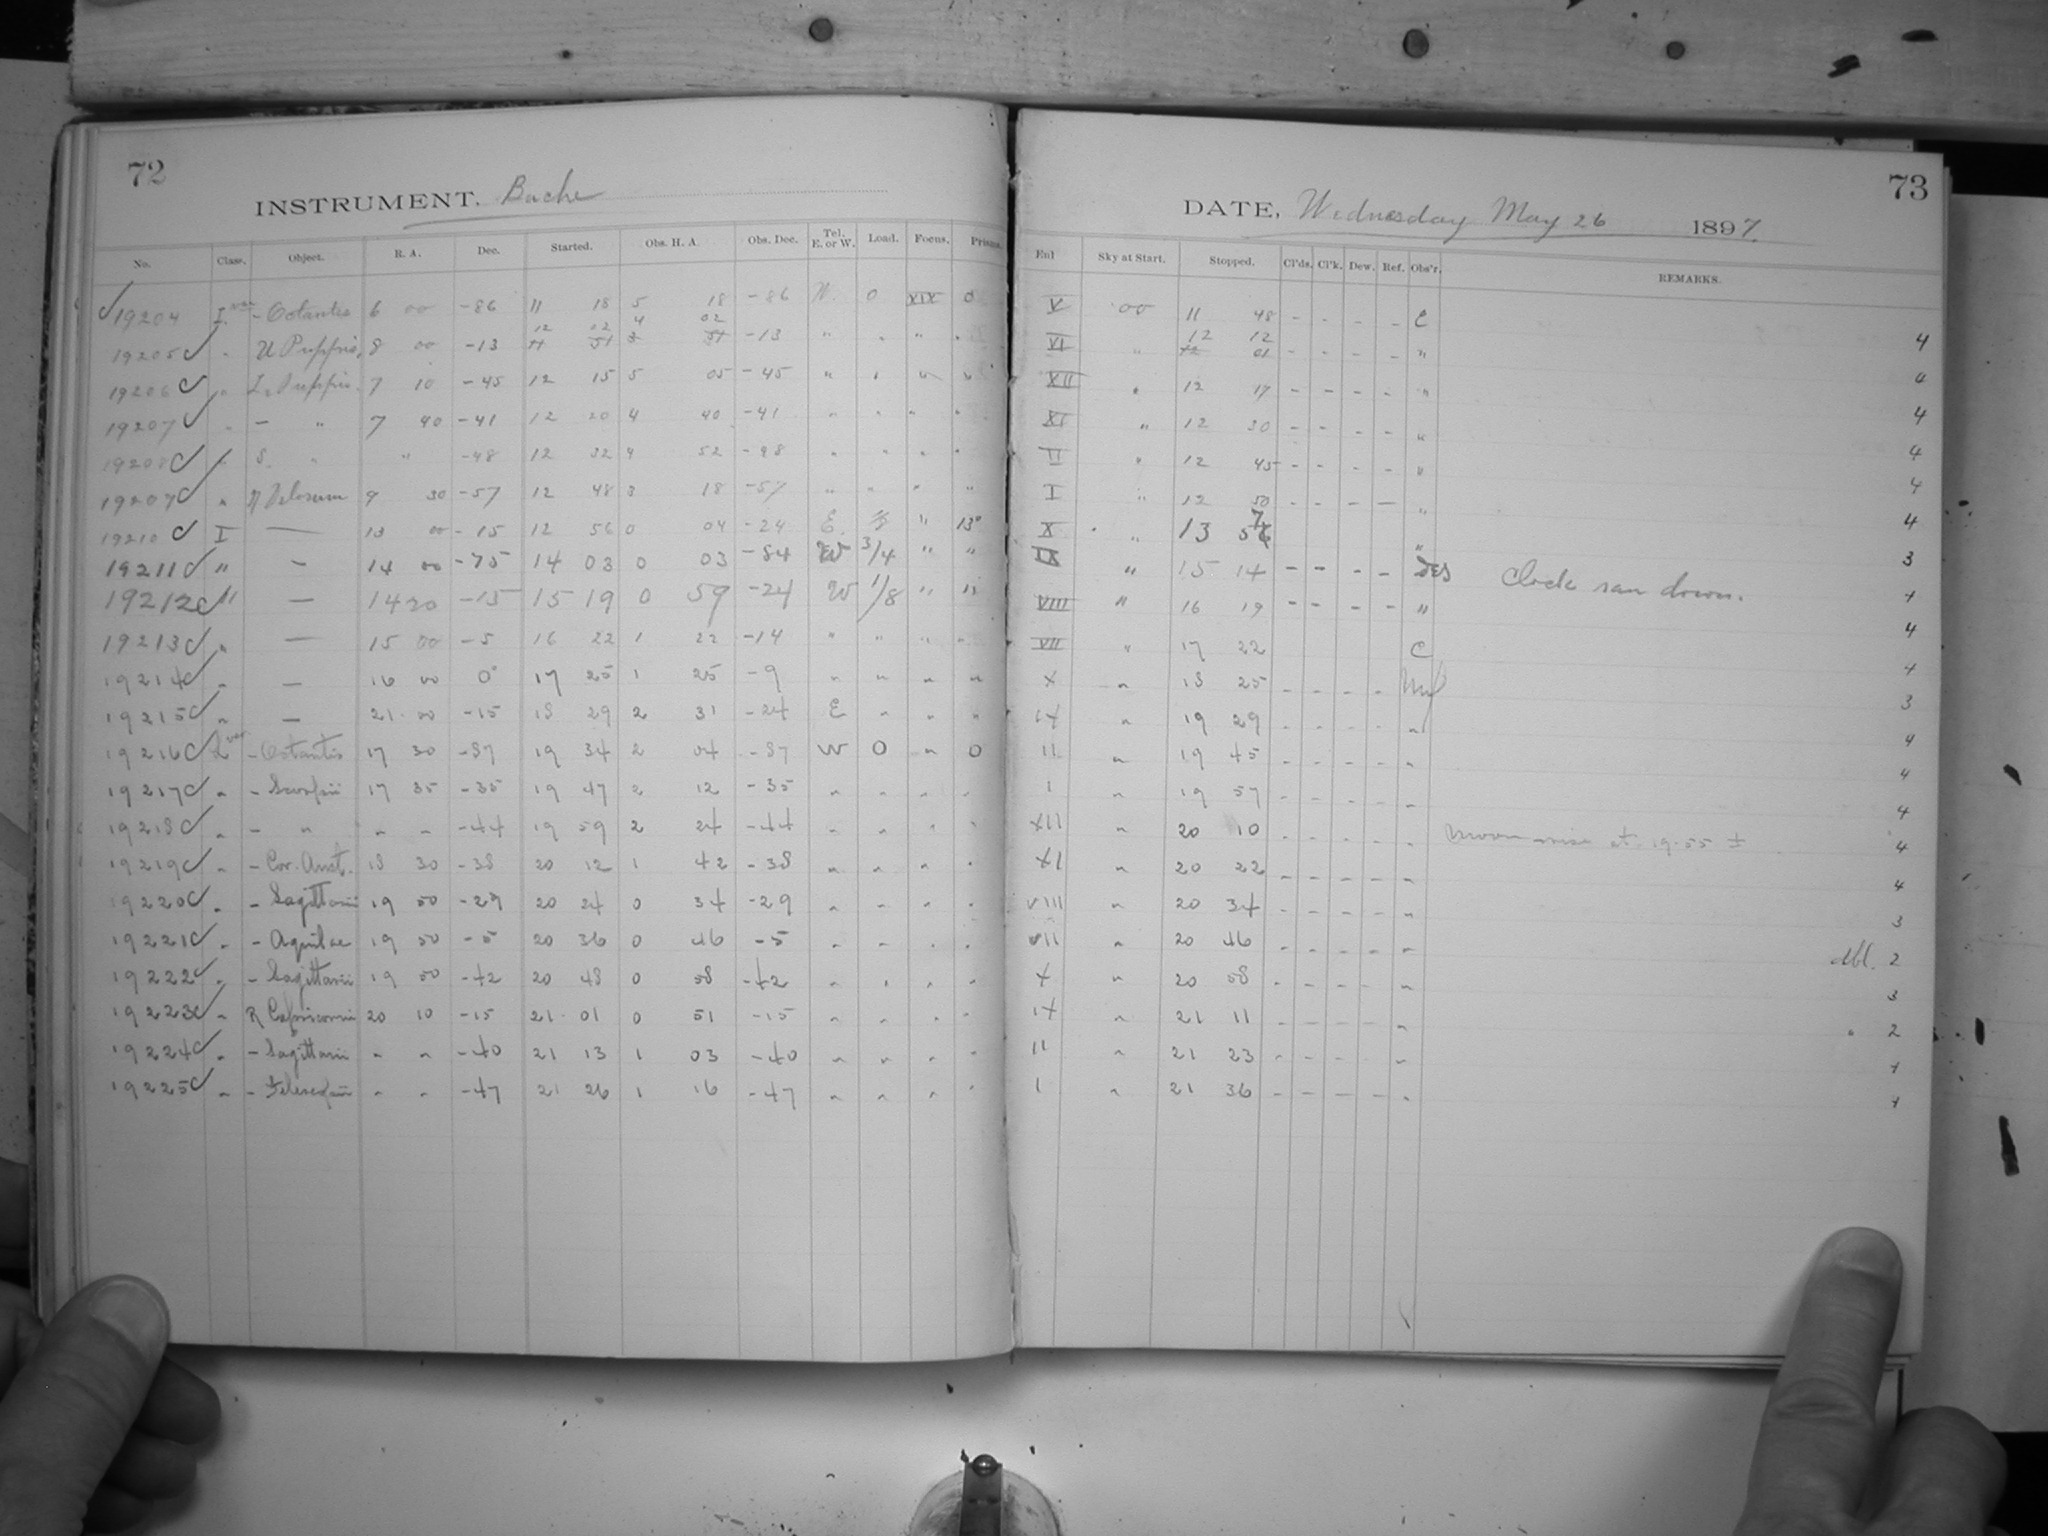 72
INSTRUMENT. Bache
No. Class. Object. R. A. Dec. Started. Obs. H. A. Obs. Dec. Tel. E. or W. Load. Focus.
19204 I. var - Octantis 6 00 -86 11 18 5 18 -86 W. 0 XIX 0
19205 " U Puppis, 8 00 -13 12 02 4 02 -13 " " " "
19206 " L2 Puppis. 7 10 -45 12 15 5 05 -45 " " " "
19207 " - " 7 40 -41 12 20 4 40 -41 " " " "
19208 " S. " " -48 12 32 4 52 -48 " " " "
19209 " N Velorum 9 30 -57 12 48 3 18 -57 " " " "
19210 I — 13 00 -15 12 56 0 04 -24 E. " 13°
19211 " - 14 00 -75 14 03 0 03 -84 W 3/4 " "
19212 " — 14 20 -15 15 19 0 59 -24 W 1/8 " "
19213 " — 15 00 -5 16 22 1 22 -14 " " " "
19214 " — 16 00 0° 17 25 1 25 -9 " " " "
19215 " — 21 00 -15 18 29 2 31 -24 E " " "
19216 var - Octantis 17 30 -87 19 34 2 04 -87 W 0 " 0
19217 " - Scorpii 17 35 -35 19 47 2 12 -35 " " " "
19218 " - " " " -44 19 59 2 24 -44 " " " "
19219 " - Cor. Aust. 18 30 -38 20 12 1 42 -38 " " " "
19220 " - Sagittarii 19 50 -29 20 24 0 34 -29 " " " "
19221 " - Aquilae 19 50 -5 20 36 0 46 -5 " " " "
19222 " - Sagittarii 19 50 -42 20 48 0 58 -42 " " " "
19223 " R Capricorni 20 10 -15 21 01 0 51 -15 " " " "
19224 " - Sagittarii " " -40 21 13 1 03 -40 " " " "
19225 " - Telescopii " " -47 21 26 1 16 -47 " " " "
73
DATE, Wednesday May 26 1897.
Sky at Start. Stopped. Cl'ds. Cl'k. Dew. Ref. Obs'r. REMARKS.
V 00 11 48 - - - - C
VI " 12 12 - - - - " 4
XII " 12 17 - - - - " 4
XI " 12 30 - - - - " 4
II " 12 45 - - - - " 4
I " 12 50 - - - - " 4
X " 13 57 " 4
IX " 15 14 - - - - Clock ran down. 3
VIII " 16 19 - - - - "
VII " 17 22 C 4
X " 18 25 - - - -
IX " 19 29 - - - - " 3
II " 19 45 - - - - " 4
I " 19 57 - - - - " 4
XII " 20 10 - - - - " Moon rise at 19.55 ± 4
XI " 20 22 - - - - " 4
VIII " 20 34 - - - - " 4
VII " 20 46 - - - - " 3
X " 20 58 - - - - " dbl. 2
IX " 21 11 - - - - " 3
II " 21 23 - - - - " " 2
I " 21 36 - - - - "